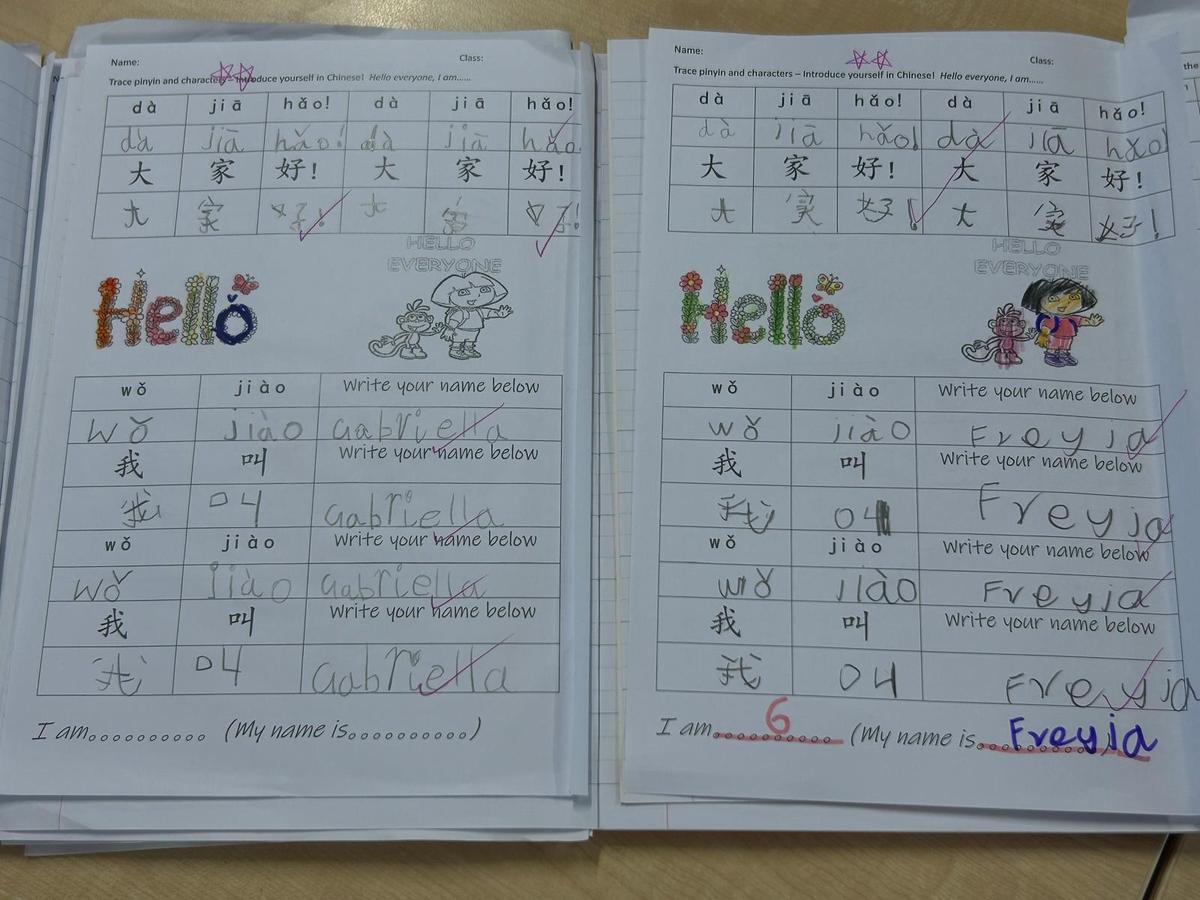 Name: Class:
Trace pinyin and characters – Introduce yourself in Chinese! Hello everyone, I am......
dà jiā hǎo! dà jiā hǎo!
dà jiā hǎo! dà jiā hǎo
大 家 好! 大 家 好!
大 家 好! 大 家 好!
HELLO
EVERYONE
Hello
wǒ jiào Write your name below
wǒ jiào Gabriella
我 叫 Write your name below
我 叫 Gabriella
wǒ jiào Write your name below
wǒ jiào Gabriella
我 叫 Write your name below
我 叫 Gabriella
I am.......... (My name is..........)
Name: Class:
Trace pinyin and characters – Introduce yourself in Chinese! Hello everyone, I am......
dà jiā hǎo! dà jiā hǎo!
dà jiā hǎo! dà jiā hǎo!
大 家 好! 大 家 好!
大 家 好! 大 家 好!
HELLO
EVERYONE
Hello
wǒ jiào Write your name below
wǒ jiào Freyja
我 叫 Write your name below
我 叫 Freyja
wǒ jiào Write your name below
wǒ jiào Freyja
我 叫 Write your name below
我 叫 Freyja
I am 6 (My name is Freyja